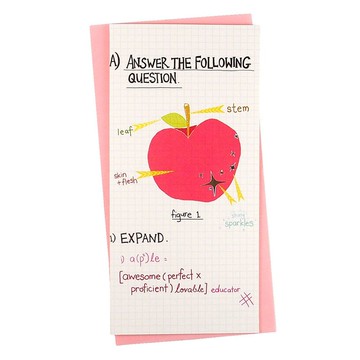 A) ANSWER THE FOLLOWING
QUESTION.
stem
leaf
skin
+ flesh
figure 1
shiny
sparkles
) EXPAND.
i) a(p²)le =
[awesome (perfect x
proficient) lovable] educator